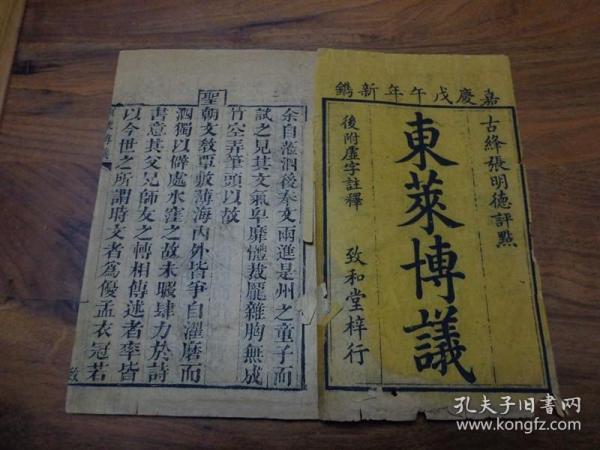 嘉慶戊午年新鐫
古絳張明德評點
東萊博議
後附虛字註釋
致和堂梓行
余自蒞泗後奉文兩進是州之童子而
試之見其文氣卑靡體裁龐雜胸無成
竹空弄筆頭以故
聖
朝文教覃敷薄海內外皆爭自濯磨而
泗獨以僻處水窪之故未暇肆力於詩
書意其父兄師友之轉相傳述者率皆
以今世之所謂時文者為優孟衣冠若
孔夫子旧书网
www.kongfz.com